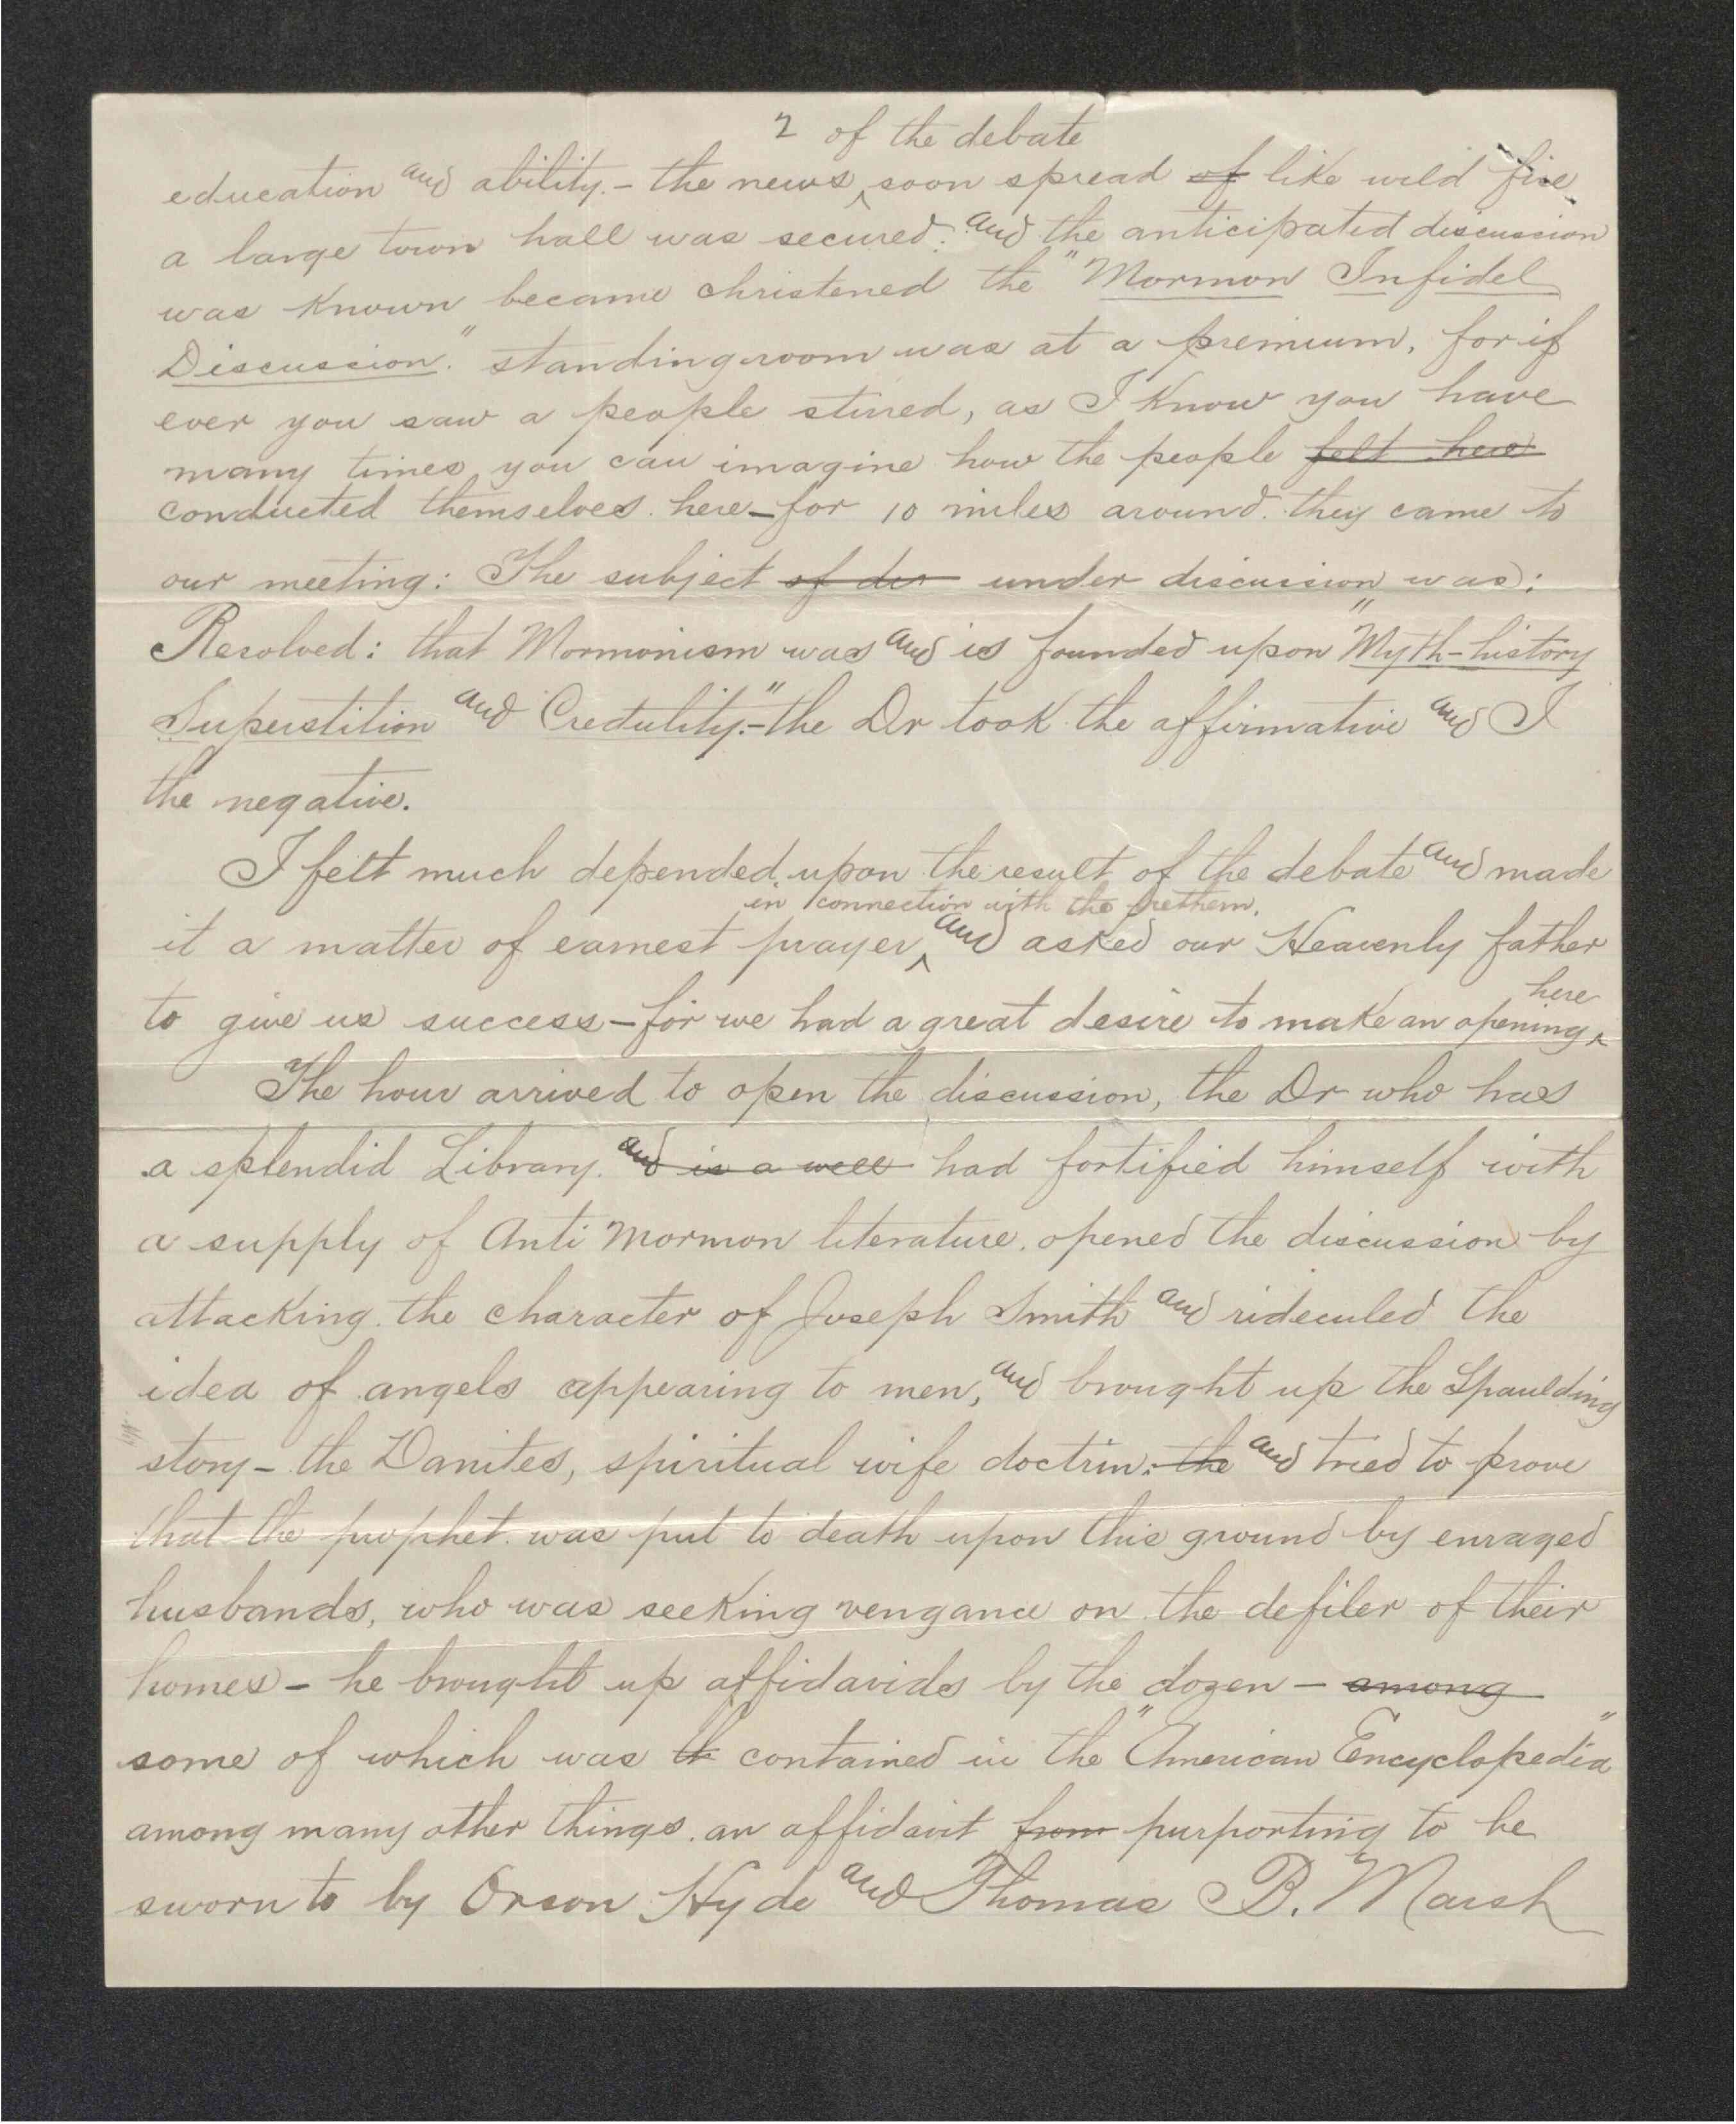 2 of the debate
education and ability. - the news ^ soon spread of like wild fire
a large town hall was secured. and the anticipated discussion
was known became christened the "Mormon Infidel
Discussion." standing room was at a premium, for if
ever you saw a people stirred, as I know you have
many times, you can imagine how the people felt here
conducted themselves. here - for 10 miles around. they came to
our meeting: The subject of dis under discussion was:
Resolved: that Mormonism was and is founded upon "Myth-history
Superstition and Credulity." - the Dr took the affirmative and I
the negative.
I felt much depended upon the result of the debate and made
in connection with the brethern.
it a matter of earnest prayer ^ and asked our Heavenly father
here
to give us success - for we had a great desire to make an opening ^
The hour arrived to open the discussion, the Dr who has
a splendid Library. and is a well had fortified himself with
a supply of Anti Mormon literature. opened the discussion by
attacking the character of Joseph Smith and rideculed the
idea of angels appearing to men, and brought up the Spaulding
story - the Danites, spiritual wife doctrin. the and tried to prove
that the prophet was put to death upon this ground by enraged
husbands, who was seeking vengance on the defiler of their
homes - he brought up affidavids by the dozen - among
some of which was th contained in the "American Encyclopedia"
among many other things. an affidavit from purporting to be
sworn to by Orson Hyde and Thomas B. Marsh